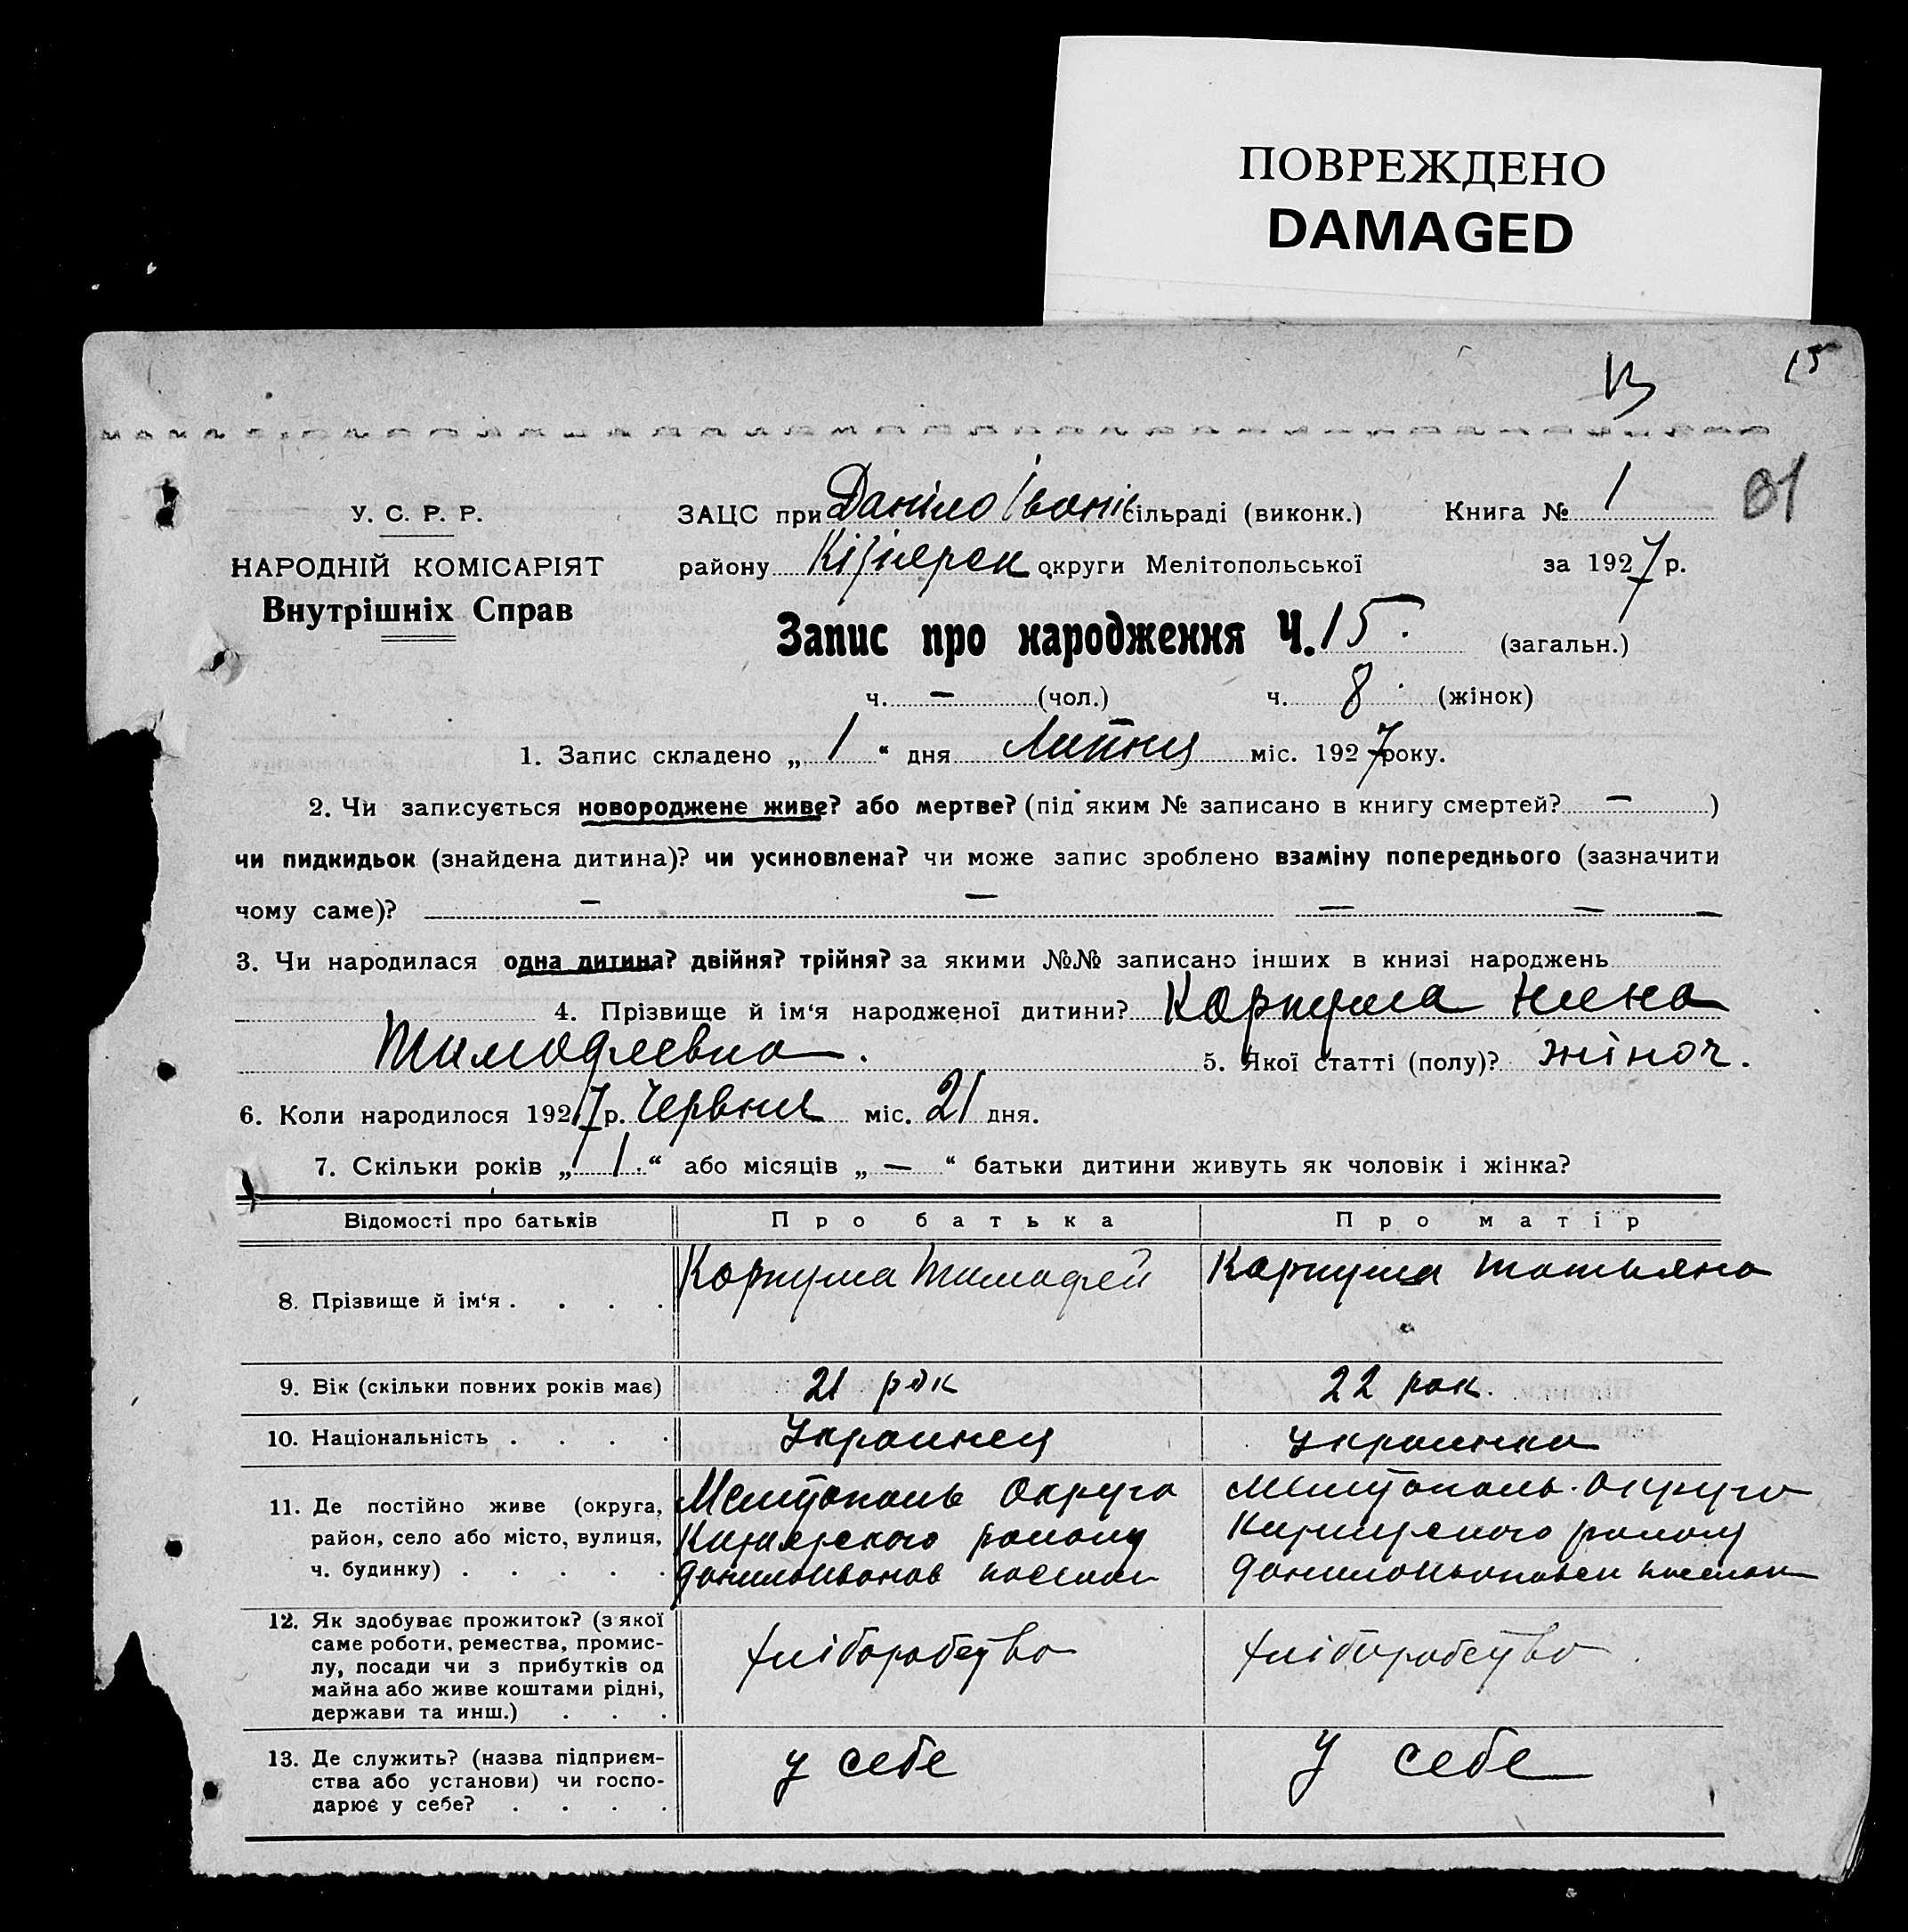 ПОВРЕЖДЕНО
DAMAGED
15
У. С. Р. Р.
НАРОДНІЙ КОМІСАРІЯТ
Внутрішніх Справ
ЗАЦС при Даніло Іванів сільраді (виконк.) Книга № 1
району Кізіярск округи Мелітопольської за 1927 р.
Запис про народження Ч. 15. (загальн.)
ч. — (чол.) ч. 8 (жінок)
1. Запис складено „ 1 “ дня Липня міс. 1927 року.
2. Чи записується новороджене живе? або мертве? (під яким № записано в книгу смертей? — )
чи пидкидьок (знайдена дитина)? чи усиновлена? чи може запис зроблено взаміну попереднього (зазначити
чому саме)? — — — — —
3. Чи народилася одна дитина? двійня? трійня? за якими №№ записано інших в книзі народжень
4. Прізвище й ім‘я народженої дитини? Карпуша Нина
Тимофеевна. 5. Якої статті (полу)? жіноч.
6. Коли народилося 1927 р. Червня міс. 21 дня.
7. Скільки років „ 1. “ або місяців „ — “ батьки дитини живуть як чоловік і жінка?
Відомості про батьків Про батька Про матір
8. Прізвище й ім‘я . . . . Карпуша Тимофей Карпуша Татьяна
9. Вік (скільки повних років має) 21 рок 22 рок.
10. Національність . . . . Украинец украинка
11. Де постійно живе (округа, Мелитополь Округа Мелитополь. Округа
район, село або місто, вулиця, Кизиярского району Кизиярского району
ч. будинку) . . . . . Данилоиванов поселок Данилоивановки поселок
12. Як здобуває прожиток? (з якої
саме роботи, ремества, промис-
лу, посади чи з прибутків од хліборобство хліборобство
майна або живе коштами рідні,
держави та инш.) . . .
13. Де служить? (назва підприєм- у себе У себе
ства або установи) чи госпо-
дарює у себе? . . . .